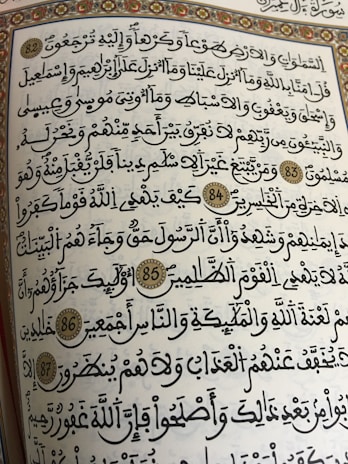 سُورَةُ آلِ عِمْرَانَ
السَّمَاوَاتِ وَالَارْضِ طَوْعاً وَكَرْهاً وَإِلَيْهِ تُرْجَعُونَ 82
قُلَ امَنَّا بِاللَّهِ وَمَا أُنزِلَ عَلَيْنَا وَمَا أُنزِلَ عَلَى إِبْرَاهِيمَ وَإِسْمَاعِيلَ
وَإِسْحَاقَ وَيَعْقُوبَ وَالَاسْبَاطِ وَمَا أُوتِيَ مُوسَى وَعِيسَى
وَالنَّبِيئُونَ مِن رَّبِّهِمْ لَا نُفَرِّقُ بَيْنَ أَحَدٍ مِّنْهُمْ وَنَحْنُ لَهُ
مُسْلِمُونَ 83 وَمَنْ يَّبْتَغِ غَيْرَ الِاسْلَامِ دِيناً فَلَنْ يُّقْبَلَ مِنْهُ وَهُوَ
الَاخِرَةِ مِنَ الْخَاسِرِينَ 84 كَيْفَ يَهْدِي اللَّهُ قَوْماً كَفَرُوا
إِيمَانِهِمْ وَشَهِدُوا أَنَّ الرَّسُولَ حَقٌّ وَجَاءَهُمُ الْبَيِّنَاتُ
لَا يَهْدِي الْقَوْمَ الظَّالِمِينَ 85 أُوْلَئِكَ جَزَاؤُهُمْ أَنَّ
لَعْنَةَ اللَّهِ وَالْمَلَائِكَةِ وَالنَّاسِ أَجْمَعِينَ 86 خَالِدِينَ
لَا يُخَفَّفُ عَنْهُمُ الْعَذَابُ وَلَا هُمْ يُنظَرُونَ 87 إِلَّا
تَابُوا مِنْ بَعْدِ ذَلِكَ وَأَصْلَحُوا فَإِنَّ اللَّهَ غَفُورٌ رَّحِيمٌ